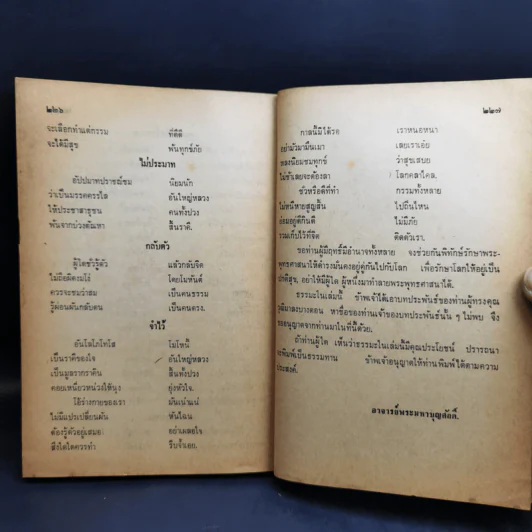 ๒๒๖
จะเลือกทำแต่กรรม ที่ดีดี
จะได้มีสุข พ้นทุกข์ภัย
ไม่ประมาท
อัปปมาทปราชญ์ชม นิยมนัก
ว่าเป็นมรรคครรไล อันใหญ่หลวง
ให้ประชาสาธุชน คนทั้งปวง
พ้นจากบ่วงตัณหา สิ้นราคี.
กลับตัว
ผู้ใดชั่วรู้ตัว แล้วกลับจิต
ไม่ถือผิดงมโง่ โดยโมหันต์
ควรจะชมว่าสม เป็นคนธรรม
รู้ผ่อนผันกลับตน เป็นคนตรง.
จำไว้
อันโลโภโทโส โมโหนี้
เป็นราคีของใจ อันใหญ่หลวง
เป็นมูลรากราคิน สิ้นทั้งปวง
คอยเหนี่ยวหน่วงให้นุง ยุ่งหัวใจ.
โอ้ร่างกายของเรา มันเน่าแน่
ไม่มีแปรเปลี่ยนผัน หันไฉน
ต้องรู้ตัวอยู่เสมอ อย่าเผลอใจ
สิ่งใดใดควรทำ รีบจ้ำเอย.
๒๒๗
กาลนี้มิได้รอ เราหนอหนา
อย่ามัวมามึนเมา เลยเราเอ๋ย
หลงนิยมชมทุกข์ ว่าสุขเสบย
ไม่ช้าเลยจะต้องลา โลกคลาไคล.
ชั่วหรือดีที่ทำ กรรมทั้งหลาย
ไม่หนีหายสูญสิ้น ไปถิ่นไหน
ย่อมอยู่ดีกินดี ไม่มีภัย
รวมเก็บไว้ที่จิต ติดตัวเรา.
ขอท่านผู้มีฤทธิ์มีอำนาจทั้งหลาย จงช่วยกันพิทักษ์รักษาพระ-
พุทธศาสนาให้ดำรงมั่นคงอยู่คู่กันไปกับโลก เพื่อรักษาโลกให้อยู่เป็น
ปรกติสุข, อย่าให้มีผู้ใด ผู้หนึ่งมาทำลายพระพุทธศาสนาได้.
ธรรมะในเล่มนี้ ข้าพเจ้าได้เอาบทประพันธ์ของท่านผู้ทรงคุณ
วุฒิมาลงบางตอน หาชื่อของท่านเจ้าของบทประพันธ์นั้น ๆ ไม่พบ จึง
ขออนุญาตจากท่านมาในที่นี้ด้วย.
ถ้าท่านผู้ใด เห็นว่าธรรมะในเล่มนี้มีคุณประโยชน์ ปรารถนา
จะพิมพ์เป็นธรรมทาน ข้าพเจ้าอนุญาตให้ท่านพิมพ์ได้ตามความ
ประสงค์.
อาจารย์พระมหาบุญศักดิ์.